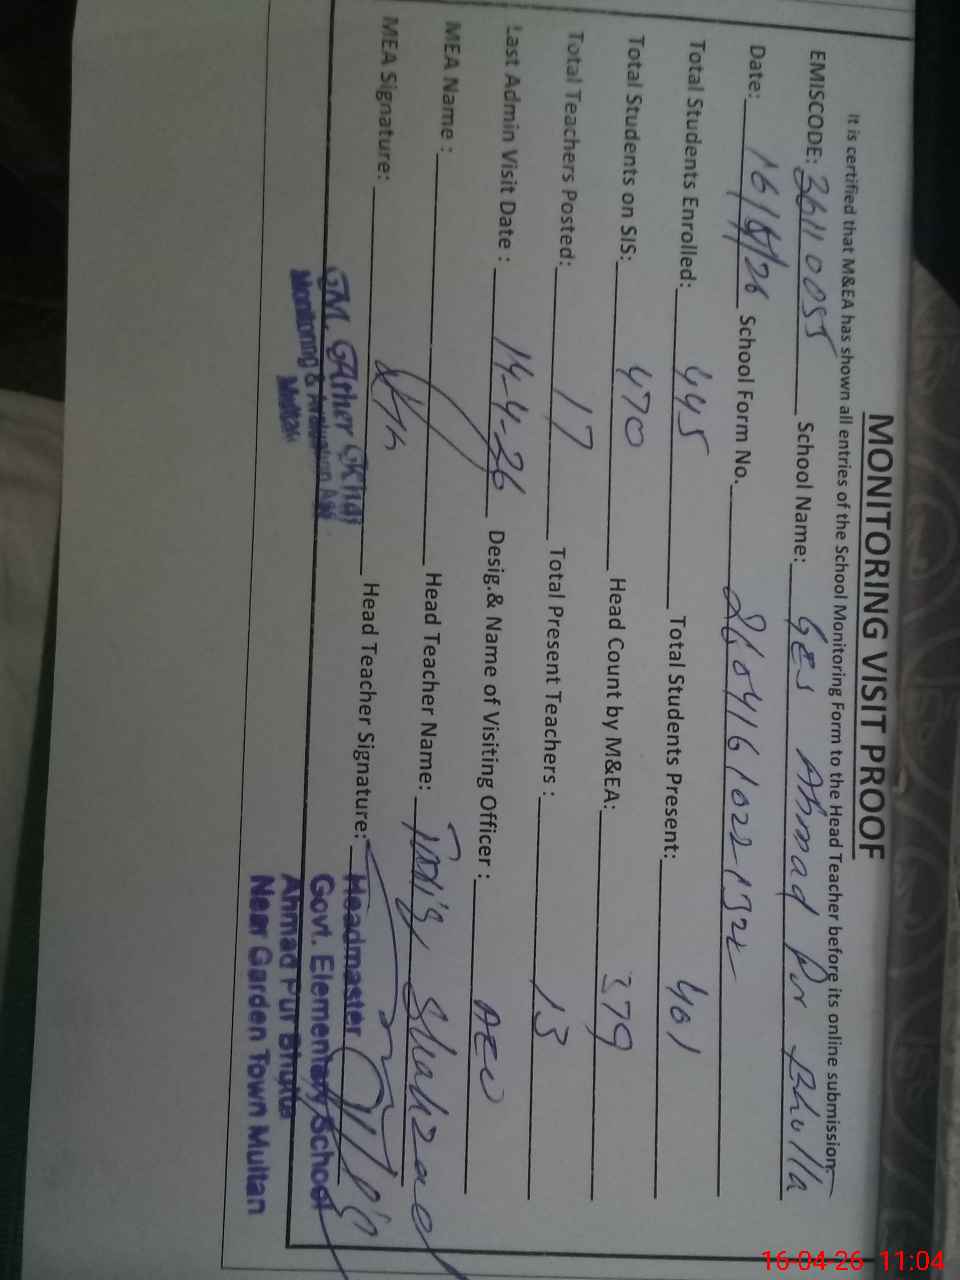 MONITORING VISIT PROOF
It is certified that M&EA has shown all entries of the School Monitoring Form to the Head Teacher before its online submission
EMISCODE: 36110055 School Name: GES Ahmad Pur Bhutta
Date: 16/4/26 School Form No. 2604161022132
Total Students Enrolled: 445 Total Students Present: 401
Total Students on SIS: 470 Head Count by M&EA: 379
Total Teachers Posted: 17 Total Present Teachers : 13
Last Admin Visit Date : 14-4-26 Desig.& Name of Visiting Officer : AEO
MEA Name : Head Teacher Name: Tariq Shahzad
MEA Signature: Head Teacher Signature:
Monitoring & Evaluation
Multan
Headmaster
Govt. Elementary School
Ahmad Pur Bhutta
Near Garden Town Multan
16-04-26 11:04